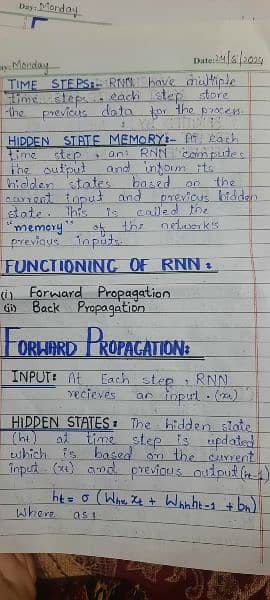 Day: Monday
Day: Monday Date: 24/6/2024
TIME STEPS:- RNN have multiple
time steps, each step store
the previous data for the process.
HIDDEN STATE MEMORY:- At each
time step, an RNN computes
the output and inform its
hidden states based on the
current input and previous hidden
state. This is called the
"memory" of the network's
previous inputs.
FUNCTIONING OF RNN:
(i) Forward Propagation
(ii) Back Propagation
FORWARD PROPAGATION:
INPUT: At Each step, RNN
recieves an input. (xt)
HIDDEN STATES: The hidden state
(ht) at time step is updated
which is based on the current
input (xt) and previous output (ht-1)
ht = σ (Whx xt + Whh ht-1 + bh)
Where as: